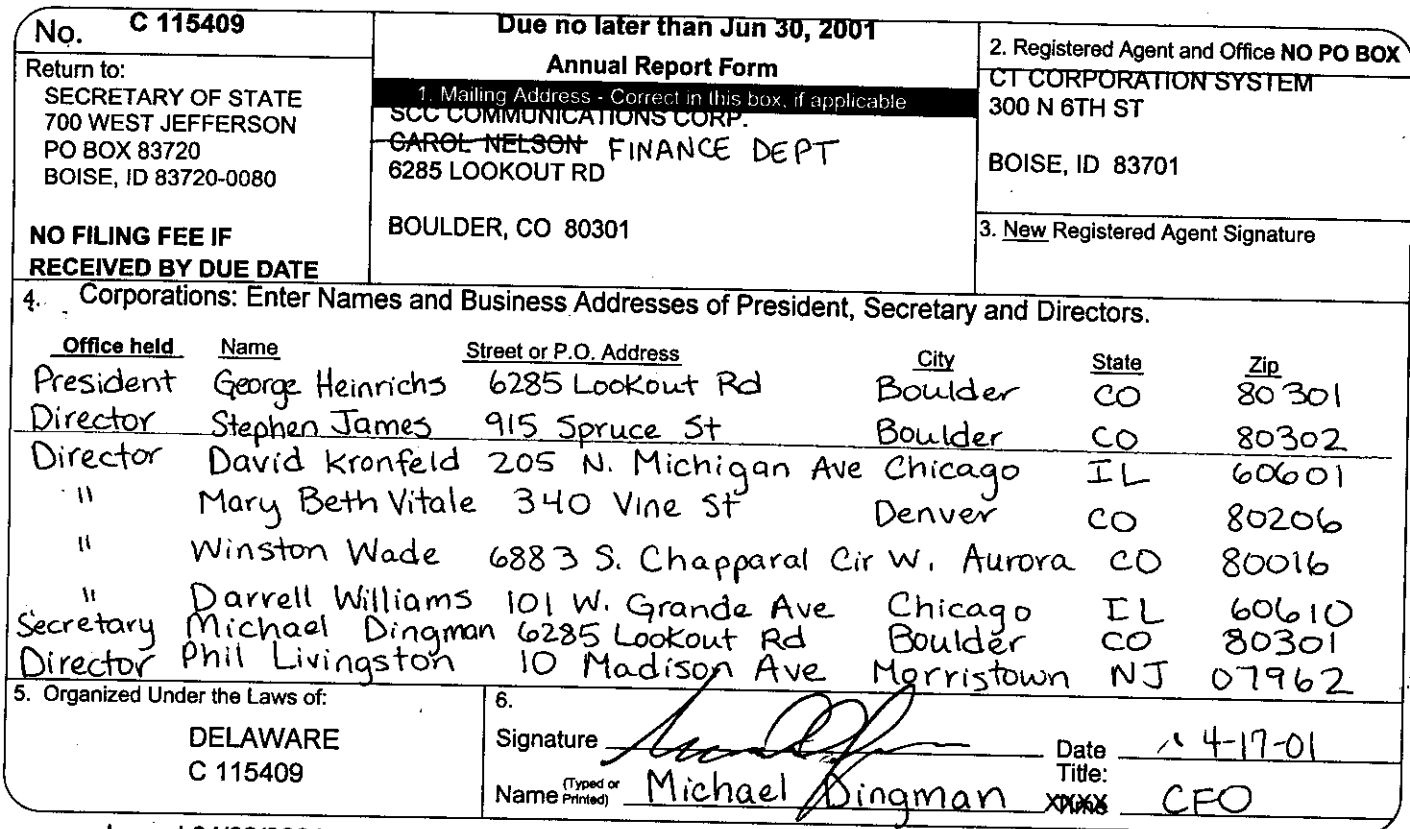 No. C 115409
Return to:
SECRETARY OF STATE
700 WEST JEFFERSON
PO BOX 83720
BOISE, ID 83720-0080
NO FILING FEE IF
RECEIVED BY DUE DATE
Due no later than Jun 30, 2001
Annual Report Form
1. Mailing Address - Correct in this box, if applicable
SCC COMMUNICATIONS CORP.
CAROL NELSON FINANCE DEPT
6285 LOOKOUT RD
BOULDER, CO 80301
2. Registered Agent and Office NO PO BOX
CT CORPORATION SYSTEM
300 N 6TH ST
BOISE, ID 83701
3. New Registered Agent Signature
4. Corporations: Enter Names and Business Addresses of President, Secretary and Directors.
Office held Name Street or P.O. Address City State Zip
President George Heinrichs 6285 Lookout Rd Boulder CO 80301
Director Stephen James 915 Spruce St Boulder CO 80302
Director David Kronfeld 205 N. Michigan Ave Chicago IL 60601
" Mary Beth Vitale 340 Vine St Denver CO 80206
" Winston Wade 6883 S. Chapparal Cir W. Aurora CO 80016
" Darrell Williams 101 W. Grande Ave Chicago IL 60610
Secretary Michael Dingman 6285 Lookout Rd Boulder CO 80301
Director Phil Livingston 10 Madison Ave Morristown NJ 07962
5. Organized Under the Laws of:
DELAWARE
C 115409
6.
Signature Date 4-17-01
Name (Typed or Printed) Michael Dingman Title: CFO